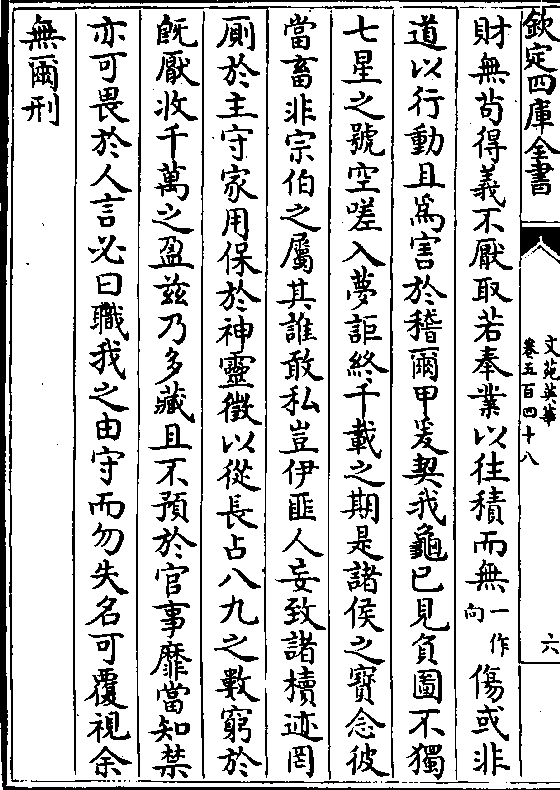 欽定四庫全書
文苑英華
卷五百四十八
六
財無苟得義不厭取若奉業以往積而無一作向傷或非
道以行動且爲害於稽爾甲爰契我龜已見負圖不獨
七星之號空嗟入夢詎終千載之期是諸侯之寶念彼
當畜非宗伯之屬其誰敢私豈伊匪人妄致諸櫝迹罔
厠於主守家用保於神靈徵以從長占八九之數窮於
旣厭收千萬之盈兹乃多藏且不預於官事靡當知禁
亦可畏於人言必曰職我之由守而勿失名可覆視余
無爾刑